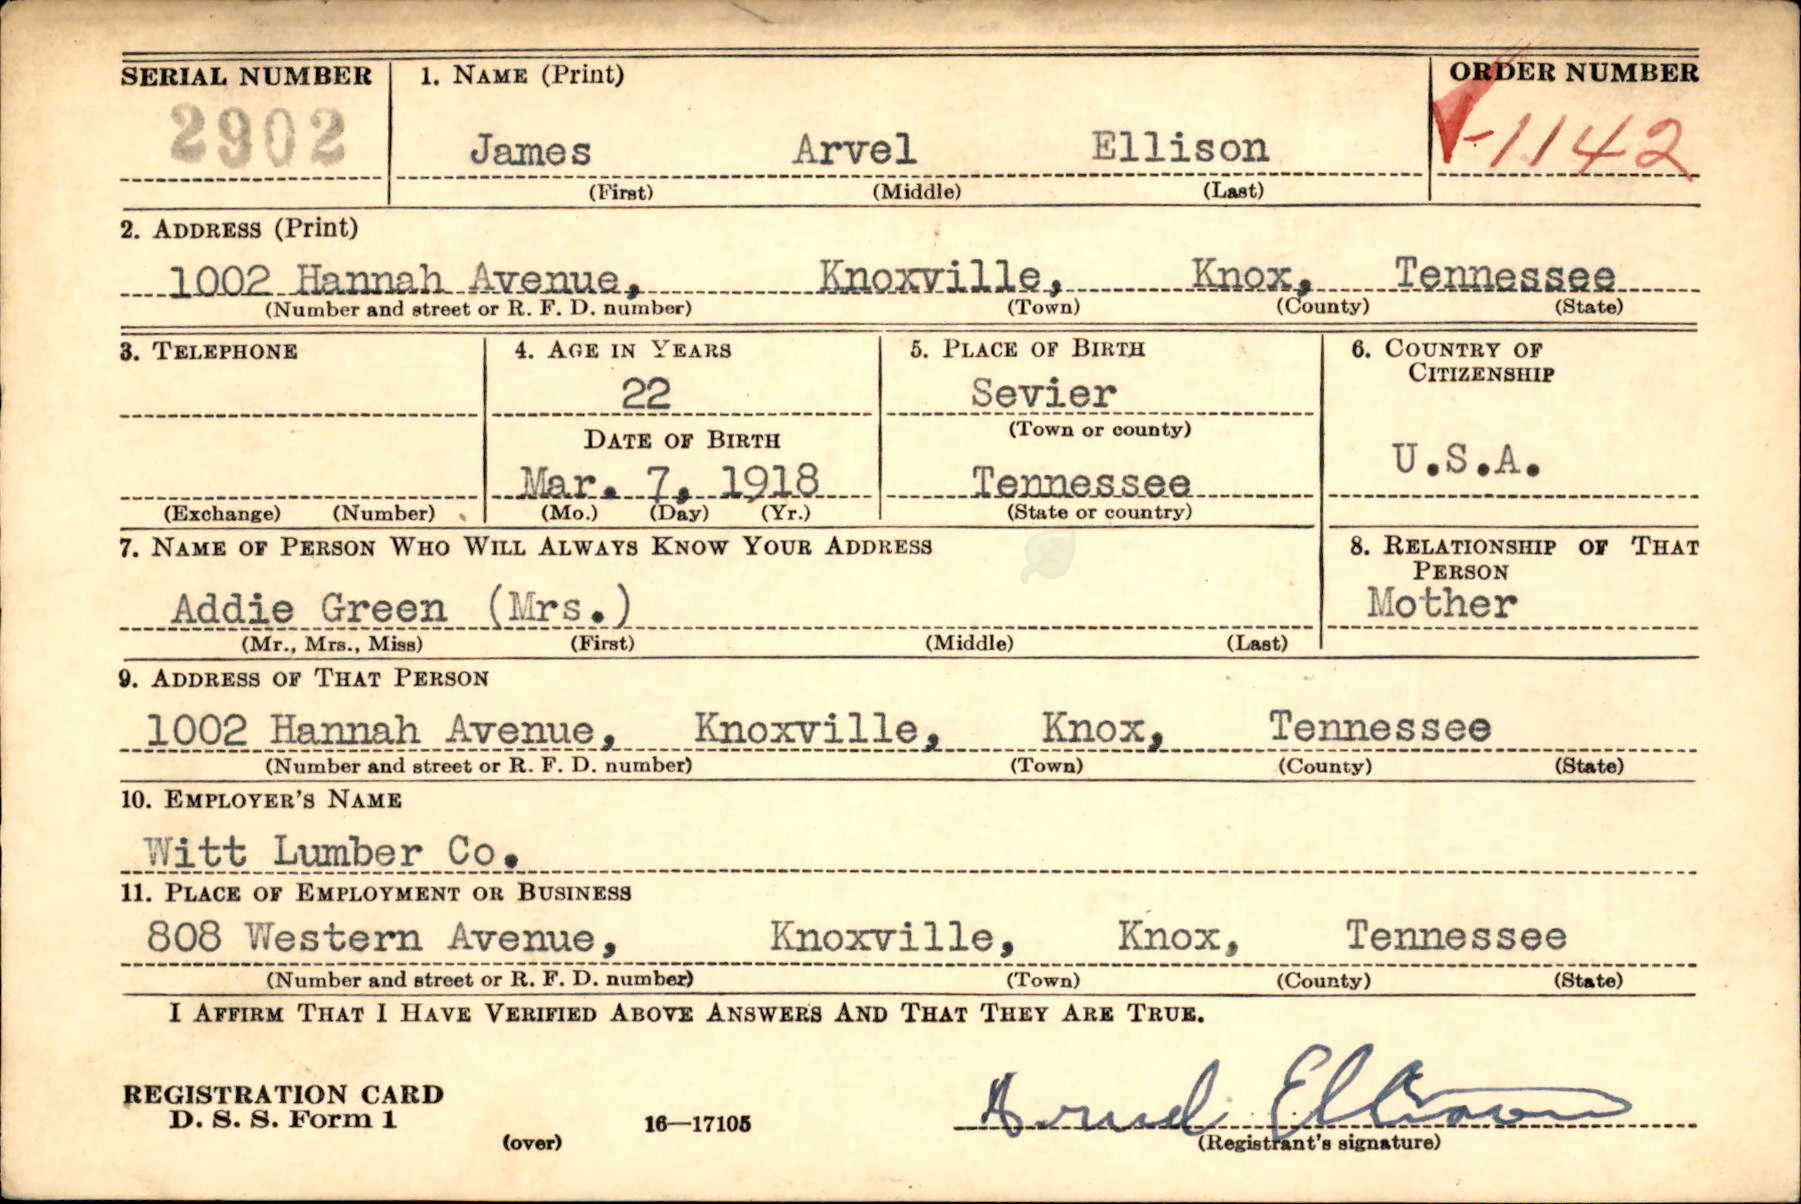 SERIAL NUMBER 1. NAME (Print) ORDER NUMBER
2902 James Arvel Ellison 1142
(First) (Middle) (Last)
2. ADDRESS (Print)
1002 Hannah Avenue, Knoxville, Knox, Tennessee
(Number and street or R. F. D. number) (Town) (County) (State)
3. TELEPHONE 4. AGE IN YEARS 5. PLACE OF BIRTH 6. COUNTRY OF
CITIZENSHIP
22 Sevier
(Town or county)
DATE OF BIRTH
U.S.A.
Mar. 7, 1918 Tennessee
(Exchange) (Number) (Mo.) (Day) (Yr.) (State or country)
7. NAME OF PERSON WHO WILL ALWAYS KNOW YOUR ADDRESS 8. RELATIONSHIP OF THAT
PERSON
Addie Green (Mrs.) Mother
(Mr., Mrs., Miss) (First) (Middle) (Last)
9. ADDRESS OF THAT PERSON
1002 Hannah Avenue, Knoxville, Knox, Tennessee
(Number and street or R. F. D. number) (Town) (County) (State)
10. EMPLOYER'S NAME
Witt Lumber Co.
11. PLACE OF EMPLOYMENT OR BUSINESS
808 Western Avenue, Knoxville, Knox, Tennessee
(Number and street or R. F. D. number) (Town) (County) (State)
I AFFIRM THAT I HAVE VERIFIED ABOVE ANSWERS AND THAT THEY ARE TRUE.
REGISTRATION CARD
D. S. S. Form 1 16—17105 Arvel Ellison
(over) (Registrant's signature)